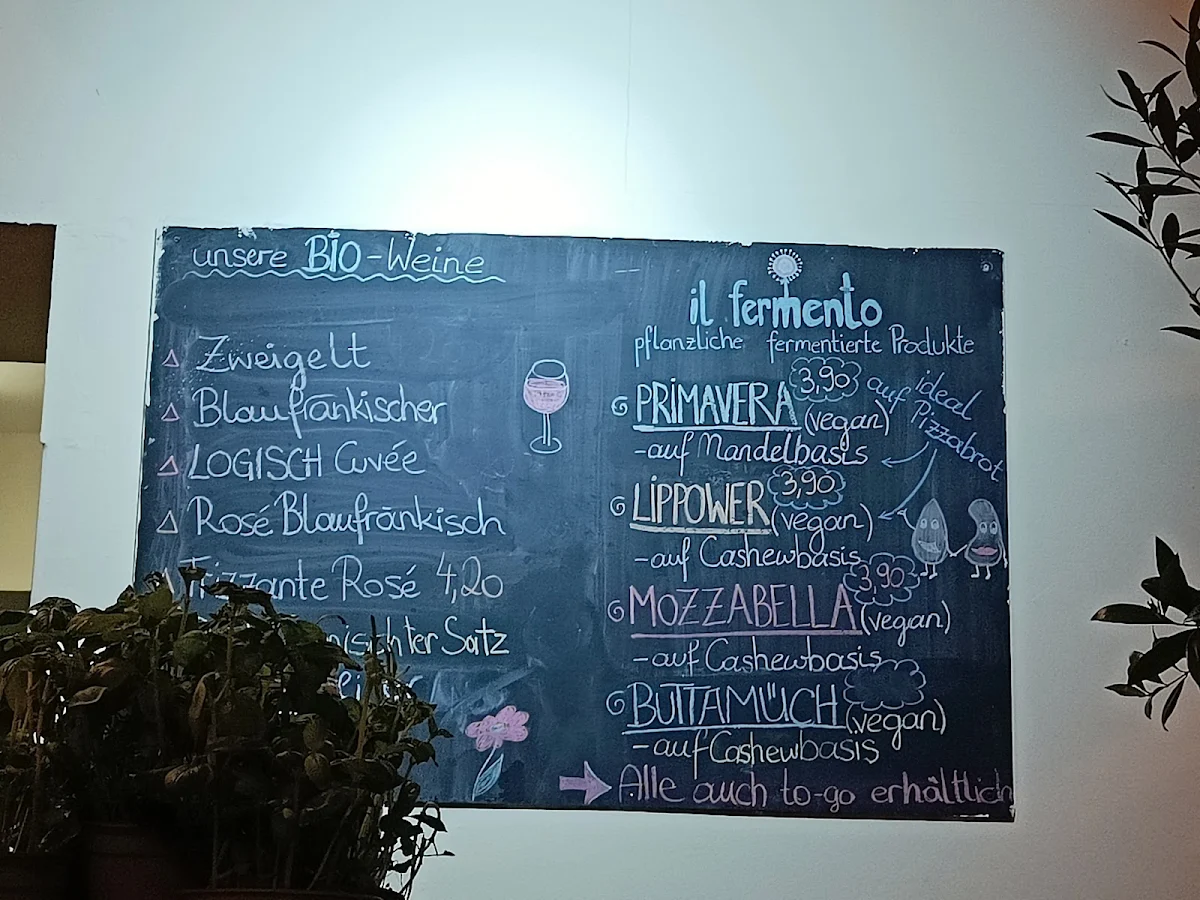 unsere BIO-Weine
Zweigelt
Blaufränkischer
LOGISCH Cuvée
Rosé Blaufränkisch
Frizzante Rosé 4,20
Satz
il fermento
pflanzliche fermentierte Produkte
PRIMAVERA 3,90
(vegan)
-auf Mandelbasis
ideal
auf Pizzabrot
LIPPOWER 3,90
(vegan)
-auf Cashewbasis
MOZZABELLA 3,90
(vegan)
-auf Cashewbasis
BUTTAMÜCH
(vegan)
-auf Cashewbasis
Alle auch to-go erhältlich